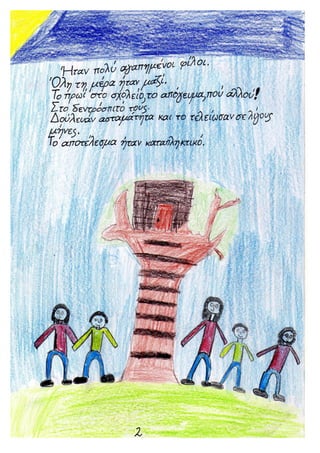 Ήταν πολύ αγαπημένοι φίλοι.
Όλη τη μέρα ήταν μαζί.
Το πρωί στο σχολείο, το απόγευμα, πού αλλού!
Στο δεντρόσπιτό τους.
Δούλευαν ασταμάτητα και το τελείωσαν σε λίγους
μήνες.
Το αποτέλεσμα ήταν καταπληκτικό.
2